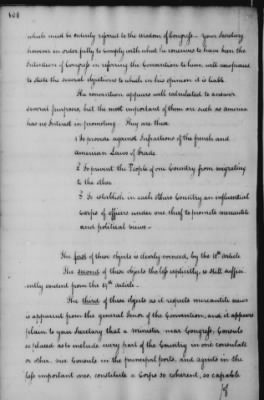 404
which must be entirely referred to the wisdom of Congress – Your Secretary
however in order fully to comply with what he conceives to have been the
Intention of Congress in referring the Convention to him, will us proceed
to state the several objections to which in his opinion it is liable.
The convention appears well calculated to answer
several purposes, but the most important of them are such as America
has no Interest in promoting. They are these
1 To provide against Infractions of the french and
American Laws of Trade
2 To prevent the People of one Country from migrating
to the other
3 To establish in each others Country an influential
Corps of officers under one chief to promote mercantile
and political views –
The first of these objects is clearly evinced, by the 10th article
The second of these objects tho less explicitly, is still suffici
ently evident from the 14th article –
The third of these objects as it respects mercantile views
is apparent from the general Tenor of the Convention, and it appears
plain to your Secretary that a minister near Congress, Consuls
so placed as to include every part of the Country in one consulate
or other, vice Consuls in the principal ports, and agents in the
less important ones, constitute a Corps so coherent, so capable
of